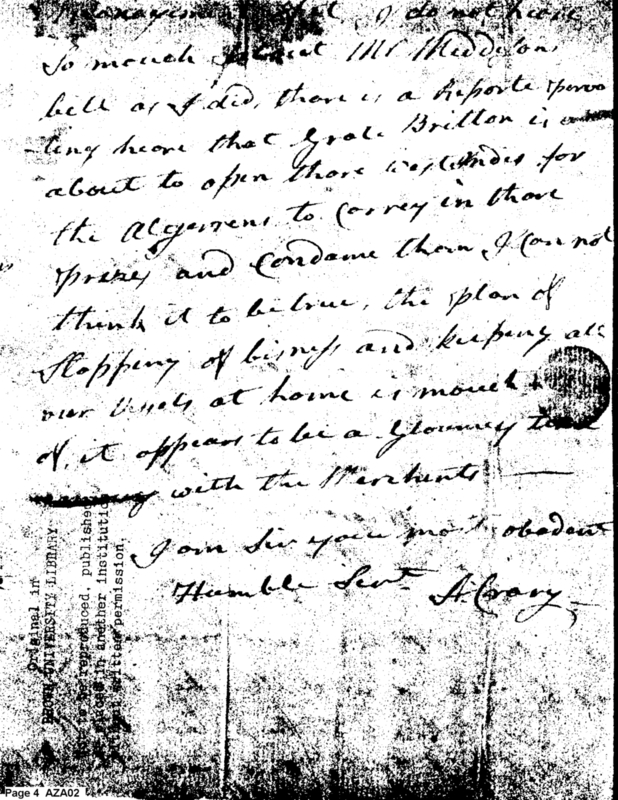 I do not hear
So mouch about Mr Meddisons
bell as I did, thare is a Reporte
ting heare that Grate Britton is
about to open thare westindis for
the Algereens to Carrey in thare
prizes and Condame them, I Can not
think it to be true, the plan of
Stoppeng of bisness and keepeng all
our Vesels at home is mouch
of, it appears to be a Gloumey time
with the Merchents
I am Sir your most obedent
Humble Servt A Crary
Original in
BROWN UNIVERSITY LIBRARY
reproduced, published
in another institution
written permission.
Page 4 AZA02